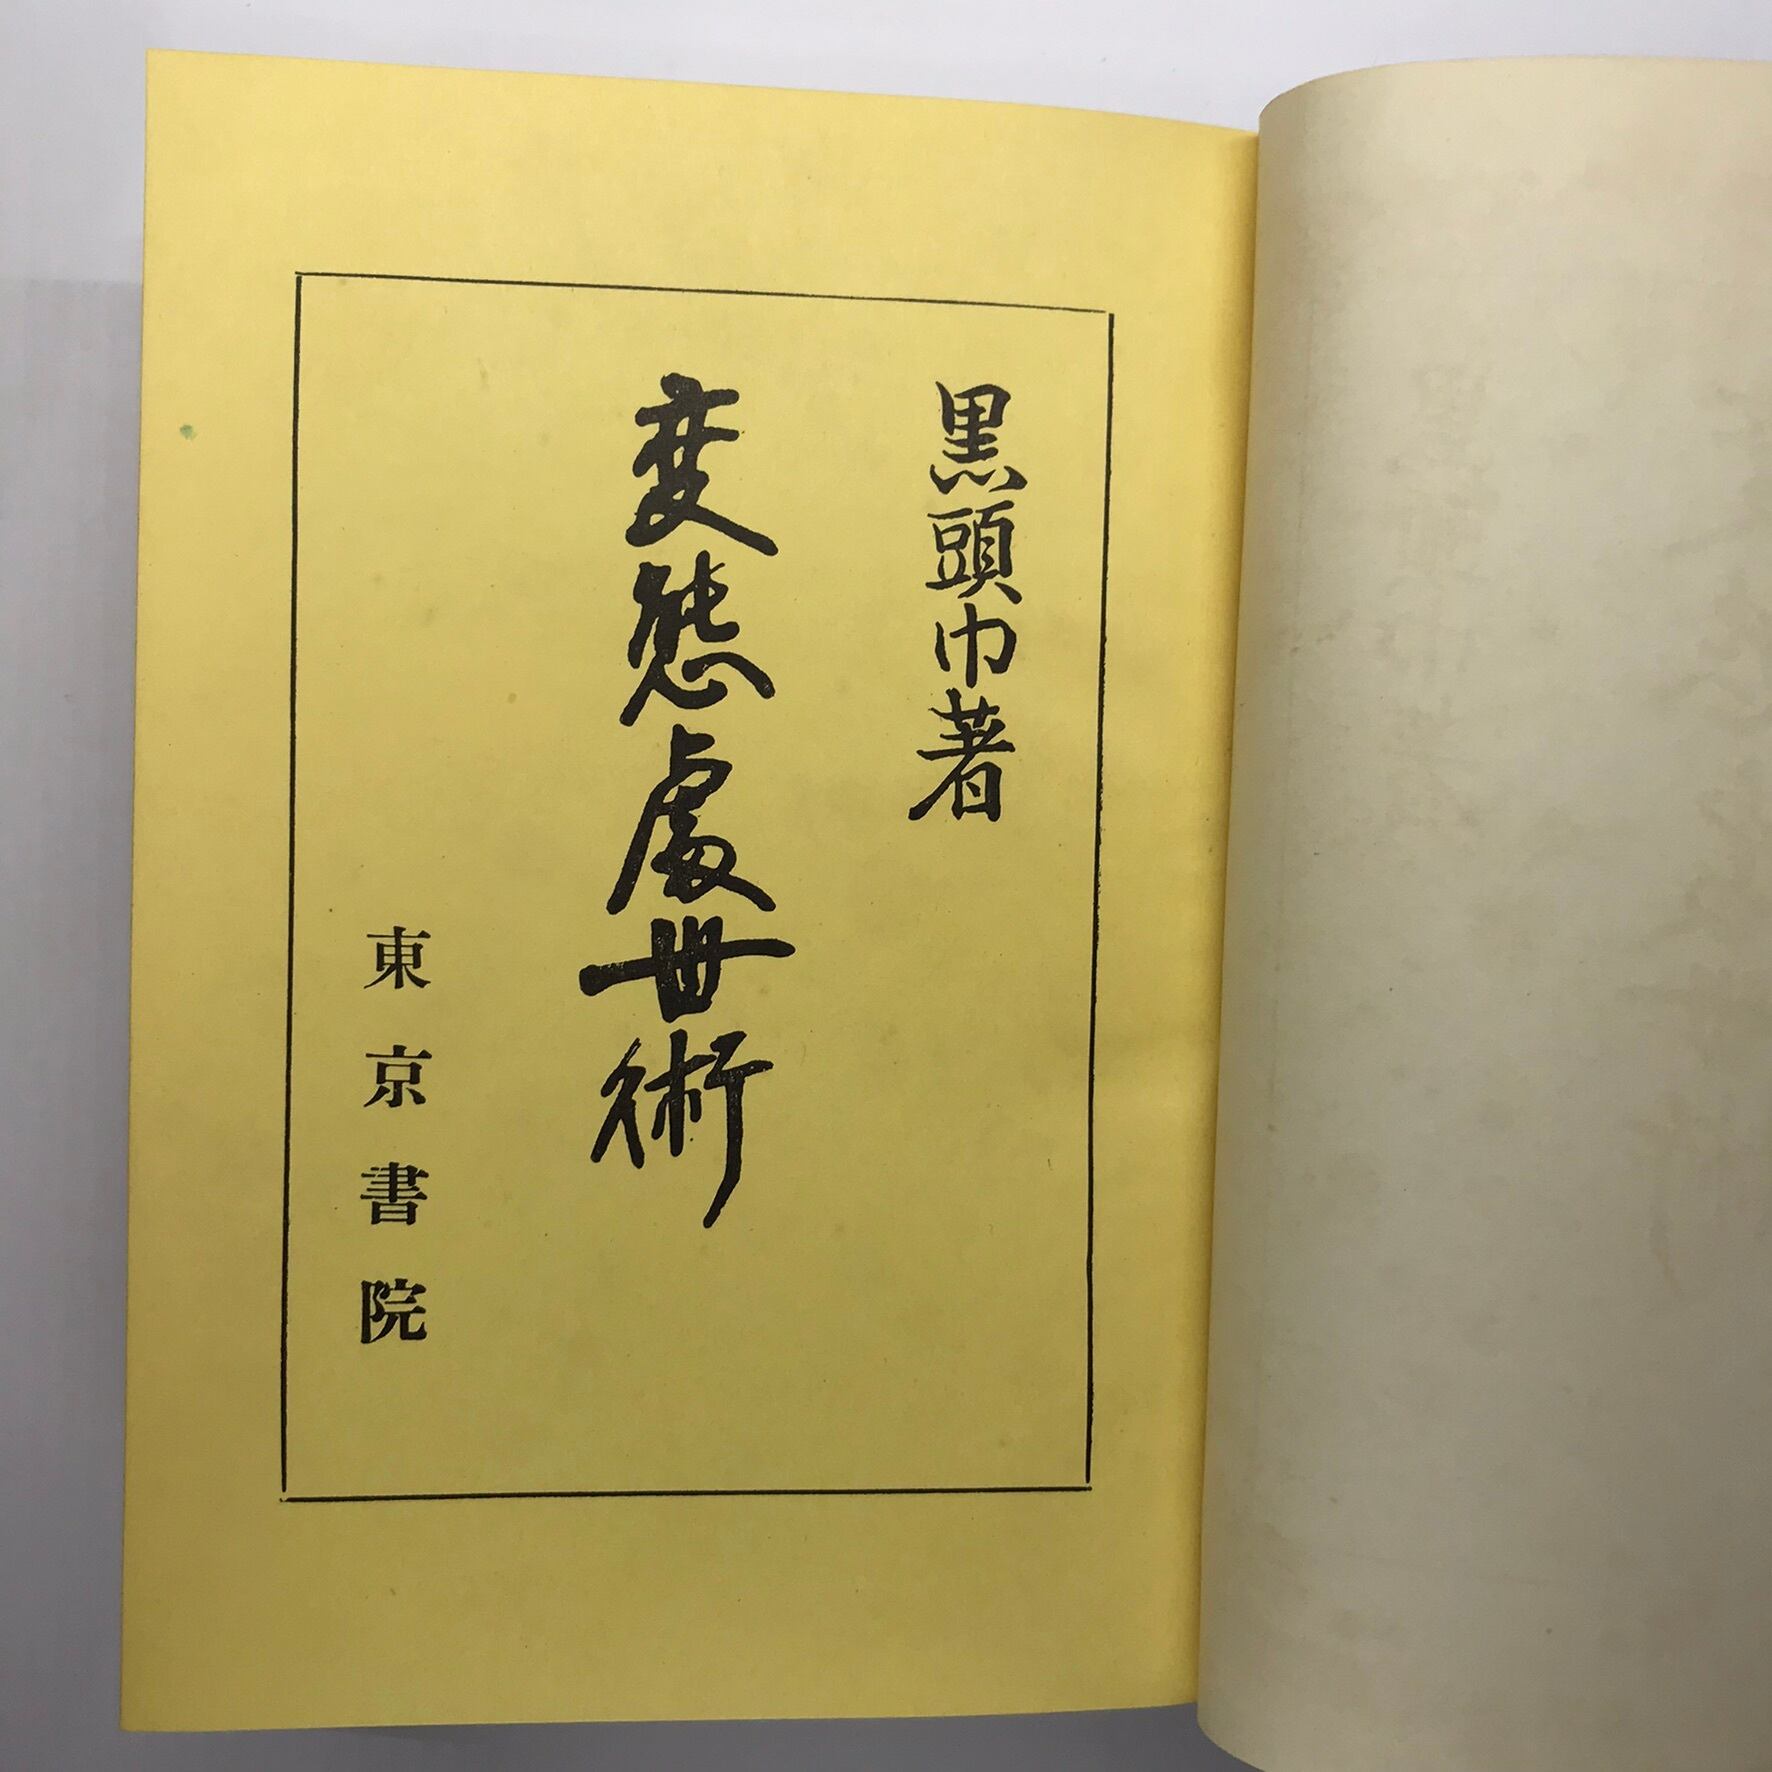 黒頭巾著
変態處世術
東京書院